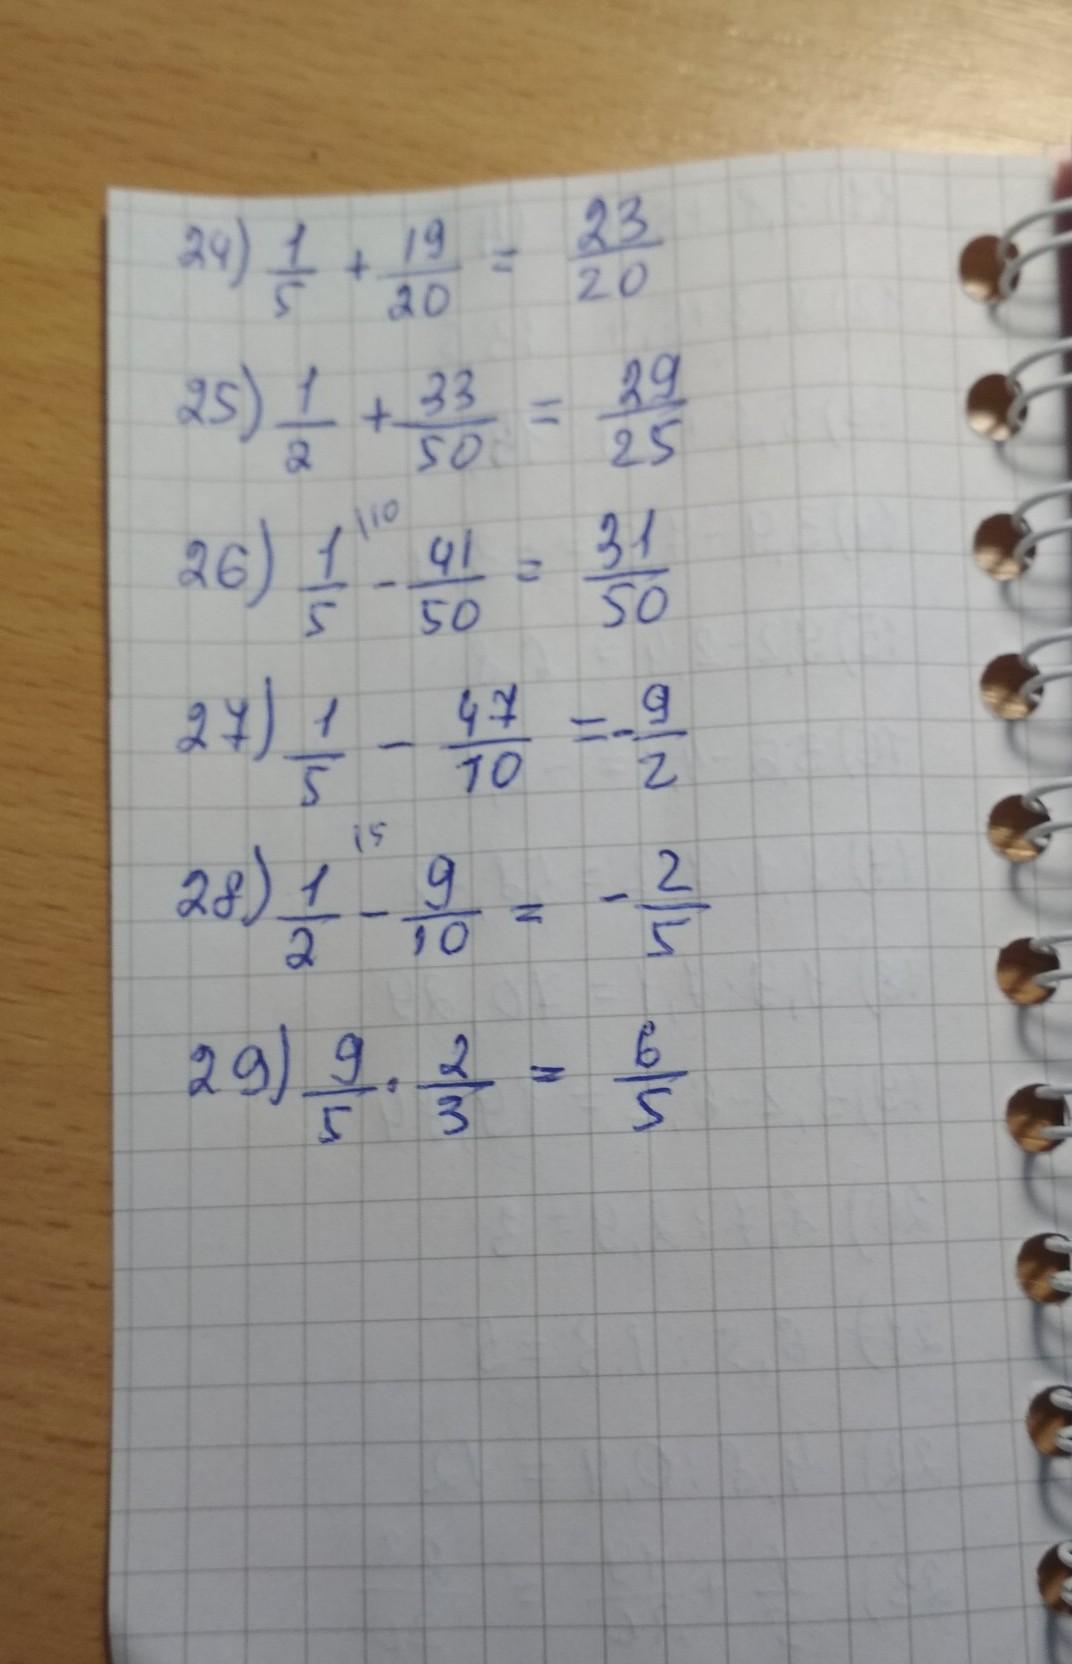 24) 1/5 + 19/20 = 23/20
25) 1/2 + 33/50 = 29/25
26) 1/5 \10 - 41/50 = 31/50
27) 1/5 - 47/10 = - 9/2
28) 1/2 \5 - 9/10 = - 2/5
29) 9/5 · 2/3 = 6/5